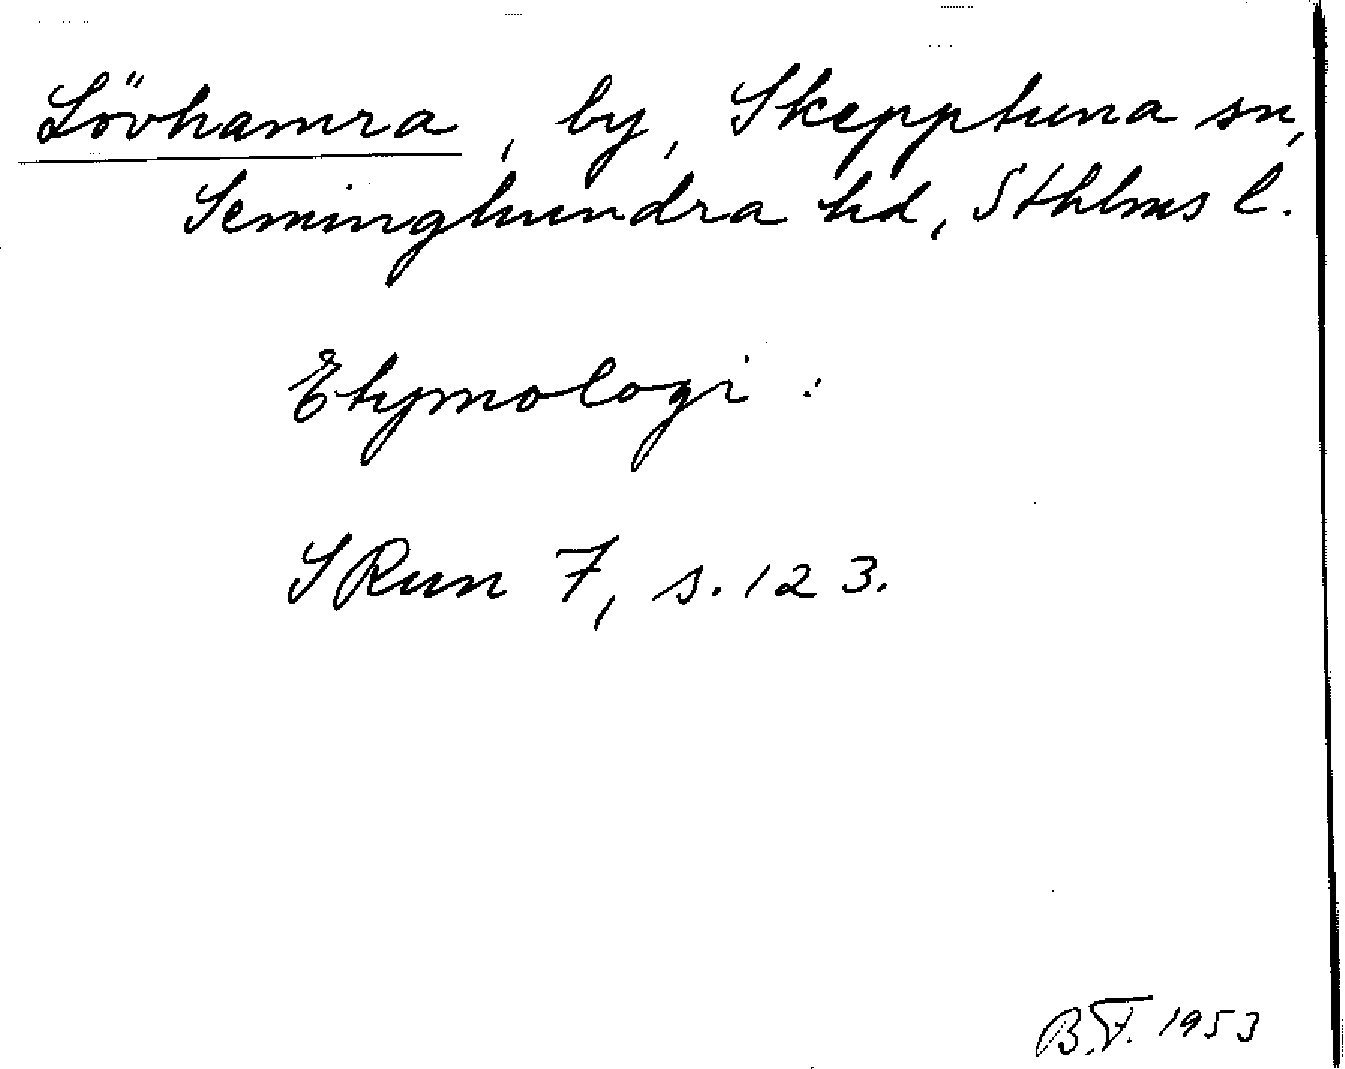 Lövhamra, by, Skepptuna sn,
Seminghundra hd, Sthlms l.
Etymologi:
SRun 7, s. 123.
B.F. 1953